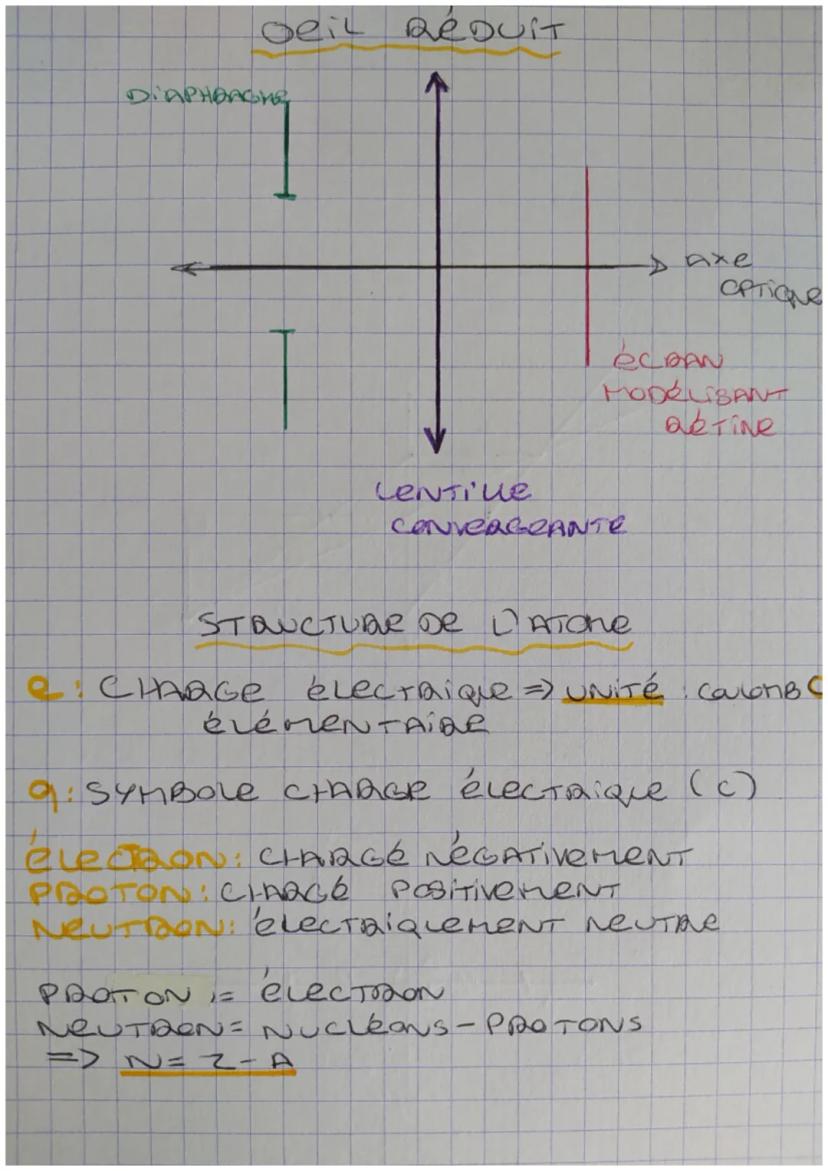 OEIL RÉDUIT
DIAPHRAGME
AXE
OPTIQUE
ÉCRAN
MODÉLISANT
RÉTINE
LENTILLE
CONVERGEANTE
STRUCTURE DE L'ATOME
e: CHARGE ÉLECTRIQUE => UNITÉ : COULOMB C
ÉLÉMENTAIRE
q: SYMBOLE CHARGE ÉLECTRIQUE (C)
ÉLECTRON: CHARGÉ NÉGATIVEMENT
PROTON: CHARGÉ POSITIVEMENT
NEUTRON: ÉLECTRIQUEMENT NEUTRE
PROTON = ÉLECTRON
NEUTRON = NUCLÉONS - PROTONS
=> N = Z - A